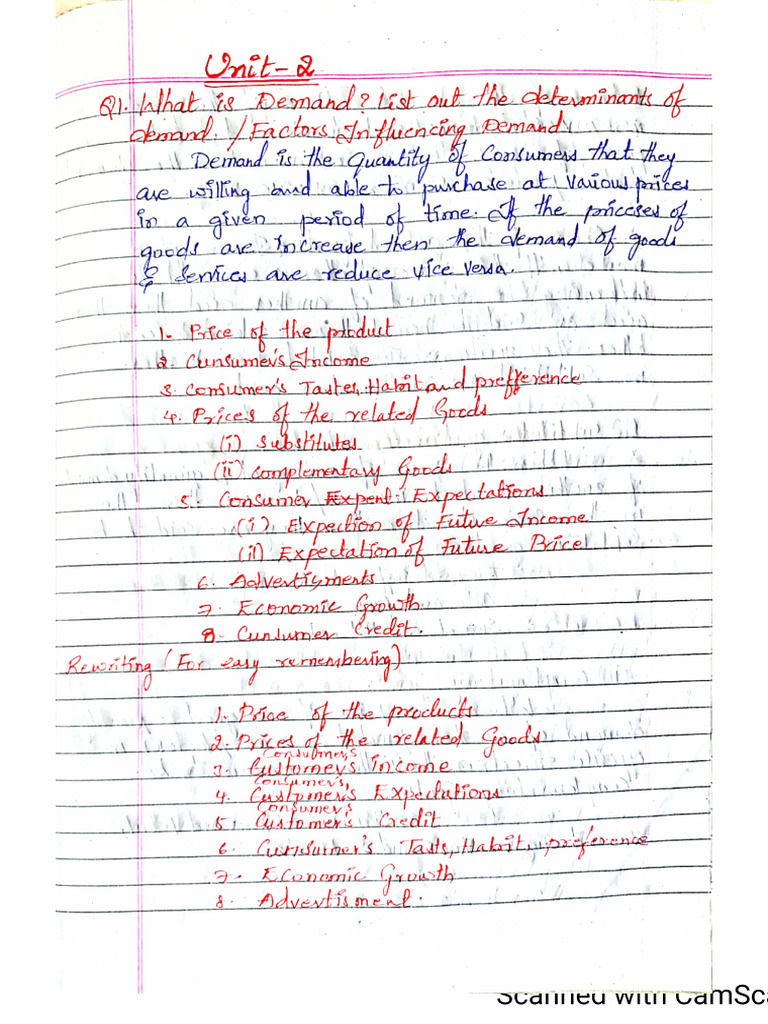 Unit-2
Q1. What is Demand? List out the determinants of
demand. / Factors Influencing Demand
Demand is the Quantity of Consumers that they
are willing and able to purchase at various prices
in a given period of time. If the priceses of
goods are increase then the demand of goods
& Services are reduce vice versa.
1. Price of the product
2. Cunsumer's Income
3. Consumer's Tastes, Habit and prefference
4. Prices of the related Goods
(i) Substitutes
(ii) Complementary Goods
5. Consumer Expent. Expectations
(i) Expection of Future Income
(ii) Expectation of Future Price
6. Advertisments
7. Economic Growth
8. Cunsumer Credit.
Rewriting (For easy remembering)
1. Price of the products
2. Prices of the related Goods
Consumer's
3. Customer's income
Consumer's,
4. Customer's Expectations
Consumer's
5. Customer's Credit
6. Cunsumer's Tasts, Habit, preference
7. Economic Growth
8. Advertisment.
Scanned with CamSca